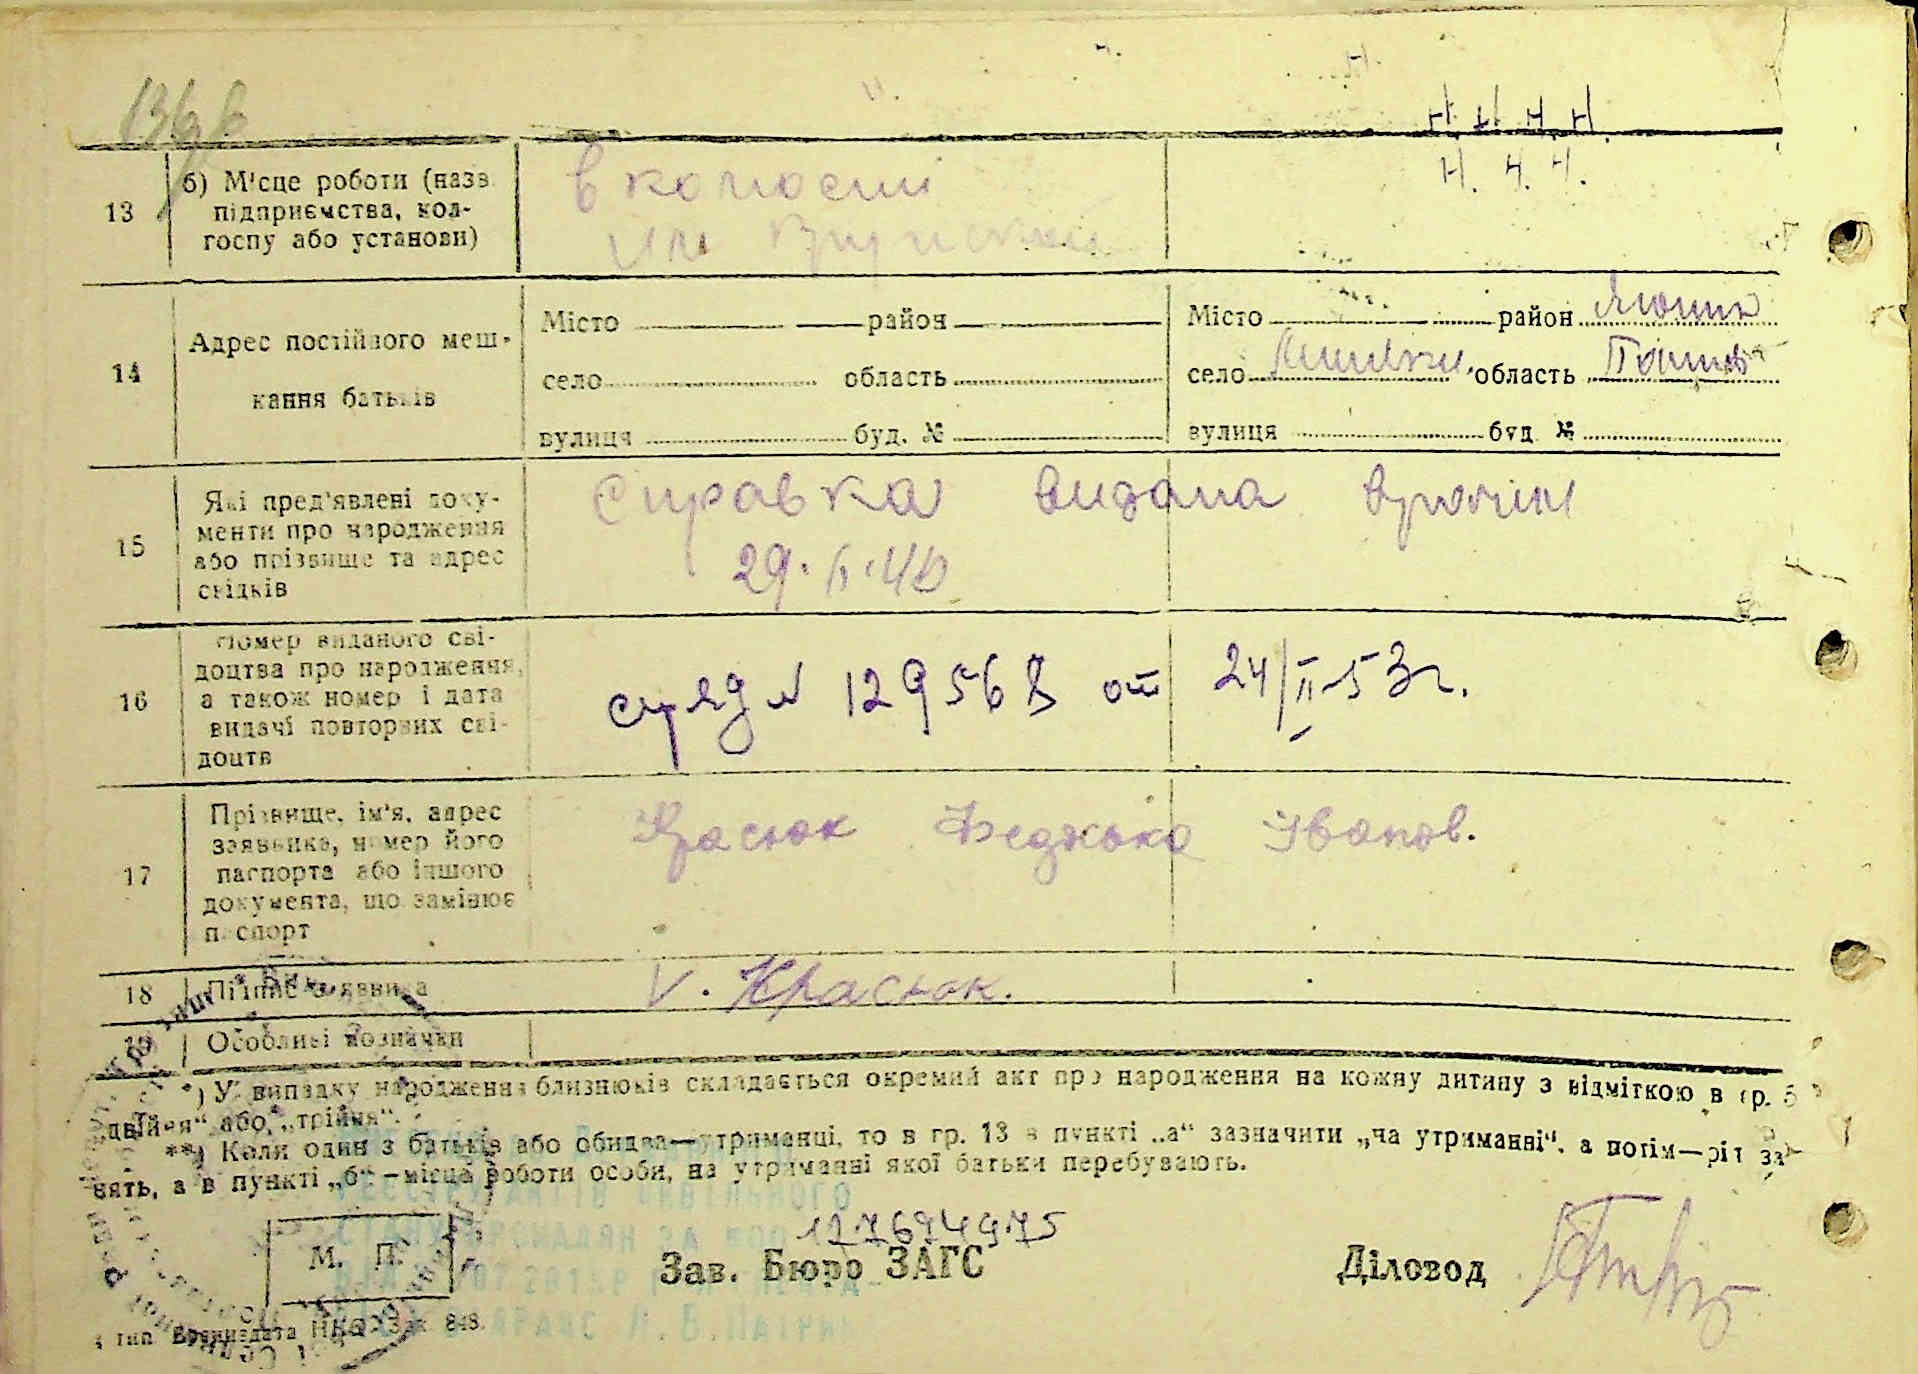 13
б) Місце роботи (назв.
підприємства, кол-
госпу або установи)
в колгоспі
н. н. н. н.
н. ч. ч.
14
Адрес постійного меш-
кання батьків
Місто район
село область
вулиця буд. №
Місто район
село область
вулиця буд. №
15
Які пред'явлені доку-
менти про народження
або прізвище та адрес
свідків
Справка видана
29. II. 40
16
Номер виданого сві-
доцтва про народження,
а також номер і дата
видачі повторних сві-
доцтв
129568 от 24/II-53 г.
17
Прізвище, ім'я, адрес
заявника, номер його
паспорта або іншого
документа, що замінює
паспорт
Красюк Федюка Іванов.
18
Підпис заявника
V. Красюк.
19
Особливі позначки
*) У випадку народження близнюків складається окремий акт про народження на кожну дитину з відміткою в гр. 5
„двійня“ або „трійня“.
**) Коли один з батьків або обидва—утриманці, то в гр. 13 в пункті „а“ зазначити „на утриманні“, а потім—рід за-
нять, а в пункті „б“ – місце роботи особи, на утриманні якої батьки перебувають.
127694975
М. П.
Зав. Бюро ЗАГС
Діловод
848.